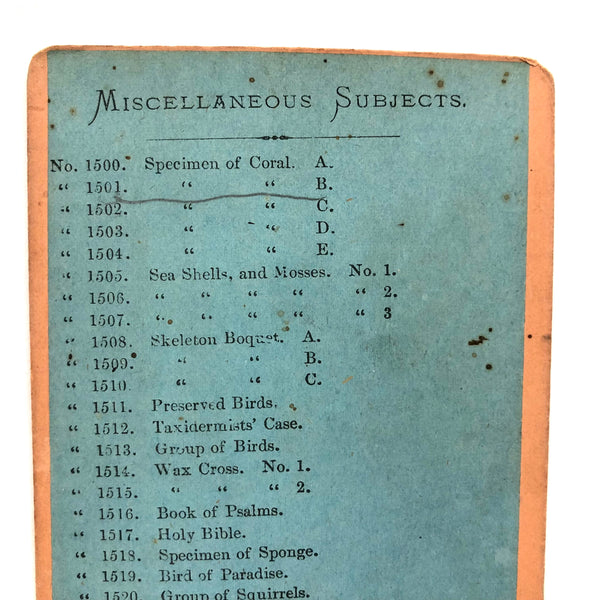 MISCELLANEOUS SUBJECTS.
No. 1500. Specimen of Coral. A.
“ 1501. “ “ B.
“ 1502. “ “ C.
“ 1503. “ “ D.
“ 1504. “ “ E.
“ 1505. Sea Shells, and Mosses. No. 1.
“ 1506. “ “ “ “ “ 2.
“ 1507. “ “ “ “ “ 3
“ 1508. Skeleton Boquet. A.
“ 1509. “ “ B.
“ 1510. “ “ C.
“ 1511. Preserved Birds.
“ 1512. Taxidermists’ Case.
“ 1513. Group of Birds.
“ 1514. Wax Cross. No. 1.
“ 1515. “ “ “ 2.
“ 1516. Book of Psalms.
“ 1517. Holy Bible.
“ 1518. Specimen of Sponge.
“ 1519. Bird of Paradise.
“ 1520. Group of Squirrels.